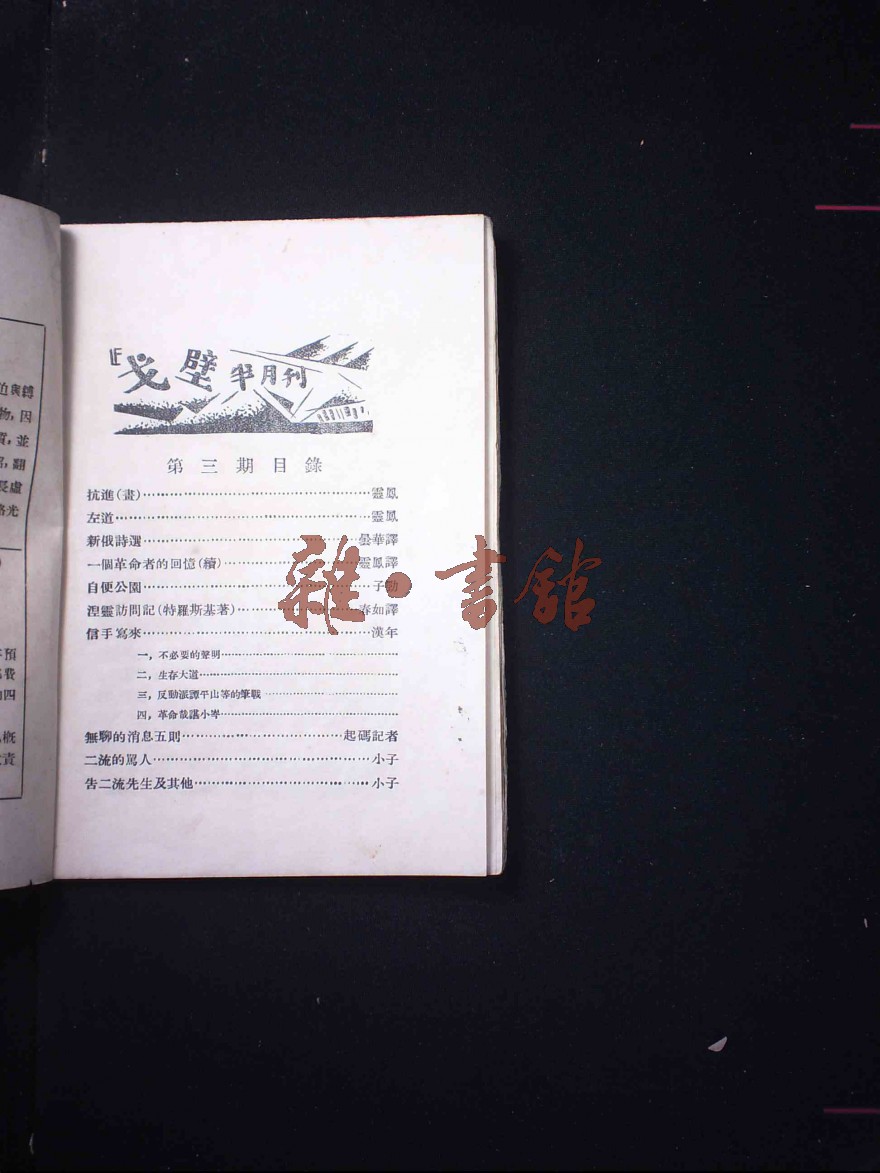 戈壁半月刊
第三期目錄
抗進(畫)…靈鳳
左道…靈鳳
新俄詩選…曇華譯
一個革命者的回憶(續)…靈鳳譯
自便公園…子功
湼靈訪問記(特羅斯基著)…春如譯
信手寫來…漢年
一，不必要的聲明…
二，生存大道…
三，反動派譚平山等的筆戰…
四，革命哉諶小岑…
無聊的消息五則…起碼記者
二流的罵人…小子
告二流先生及其他…小子
雜·書館
物，因
質，並
翻
長虛
光
預
費
四
概
責